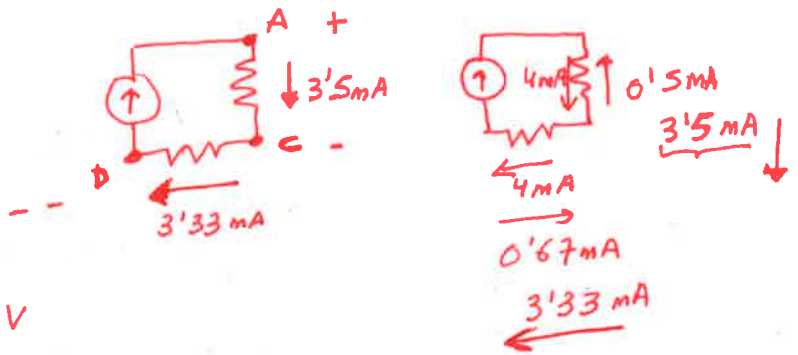 A +
3'5mA
C -
D
- -
3'33 mA
V
4mA
0'5mA
3'5 mA
4mA
0'67mA
3'33 mA